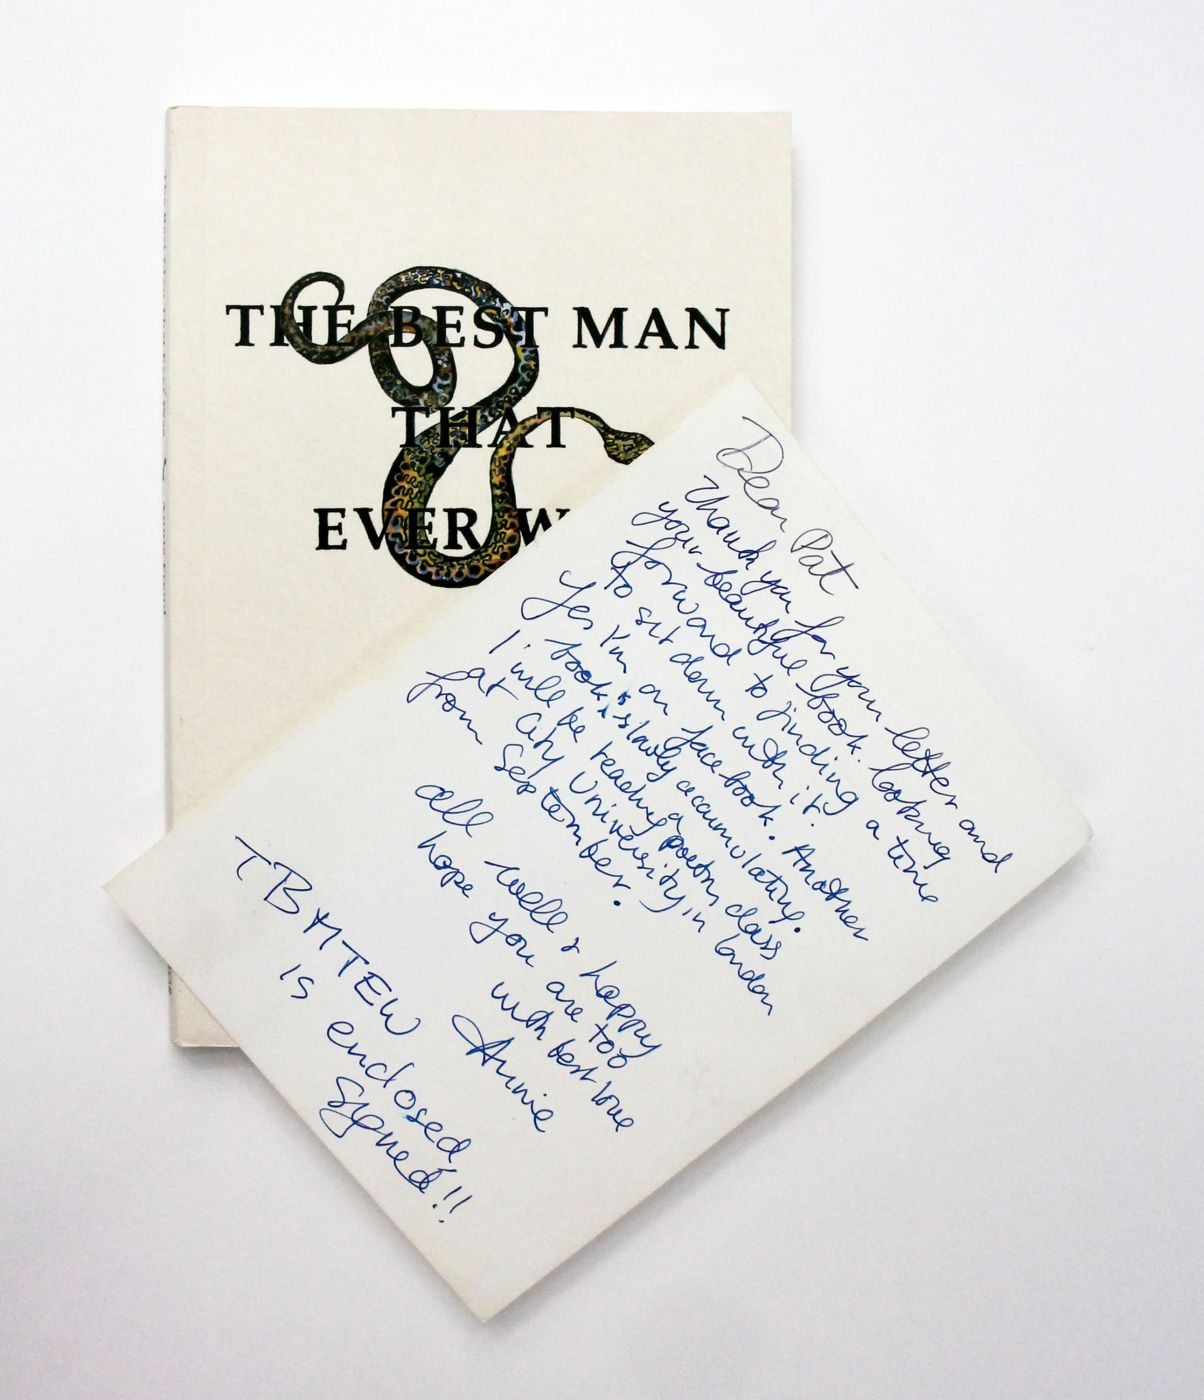 THE BEST MAN
THAT
EVER W
Dear Pat
Thank you for your letter and
your beautiful book. looking
forward to finding a time
to sit down with it.
Yes I'm on facebook. Another
book is slowly accumulating.
I will be teaching a poetry class
at City University in London
from September.
all well & happy
hope you are too
with best love
Annie
TBMTEW
is enclosed,
signed!!